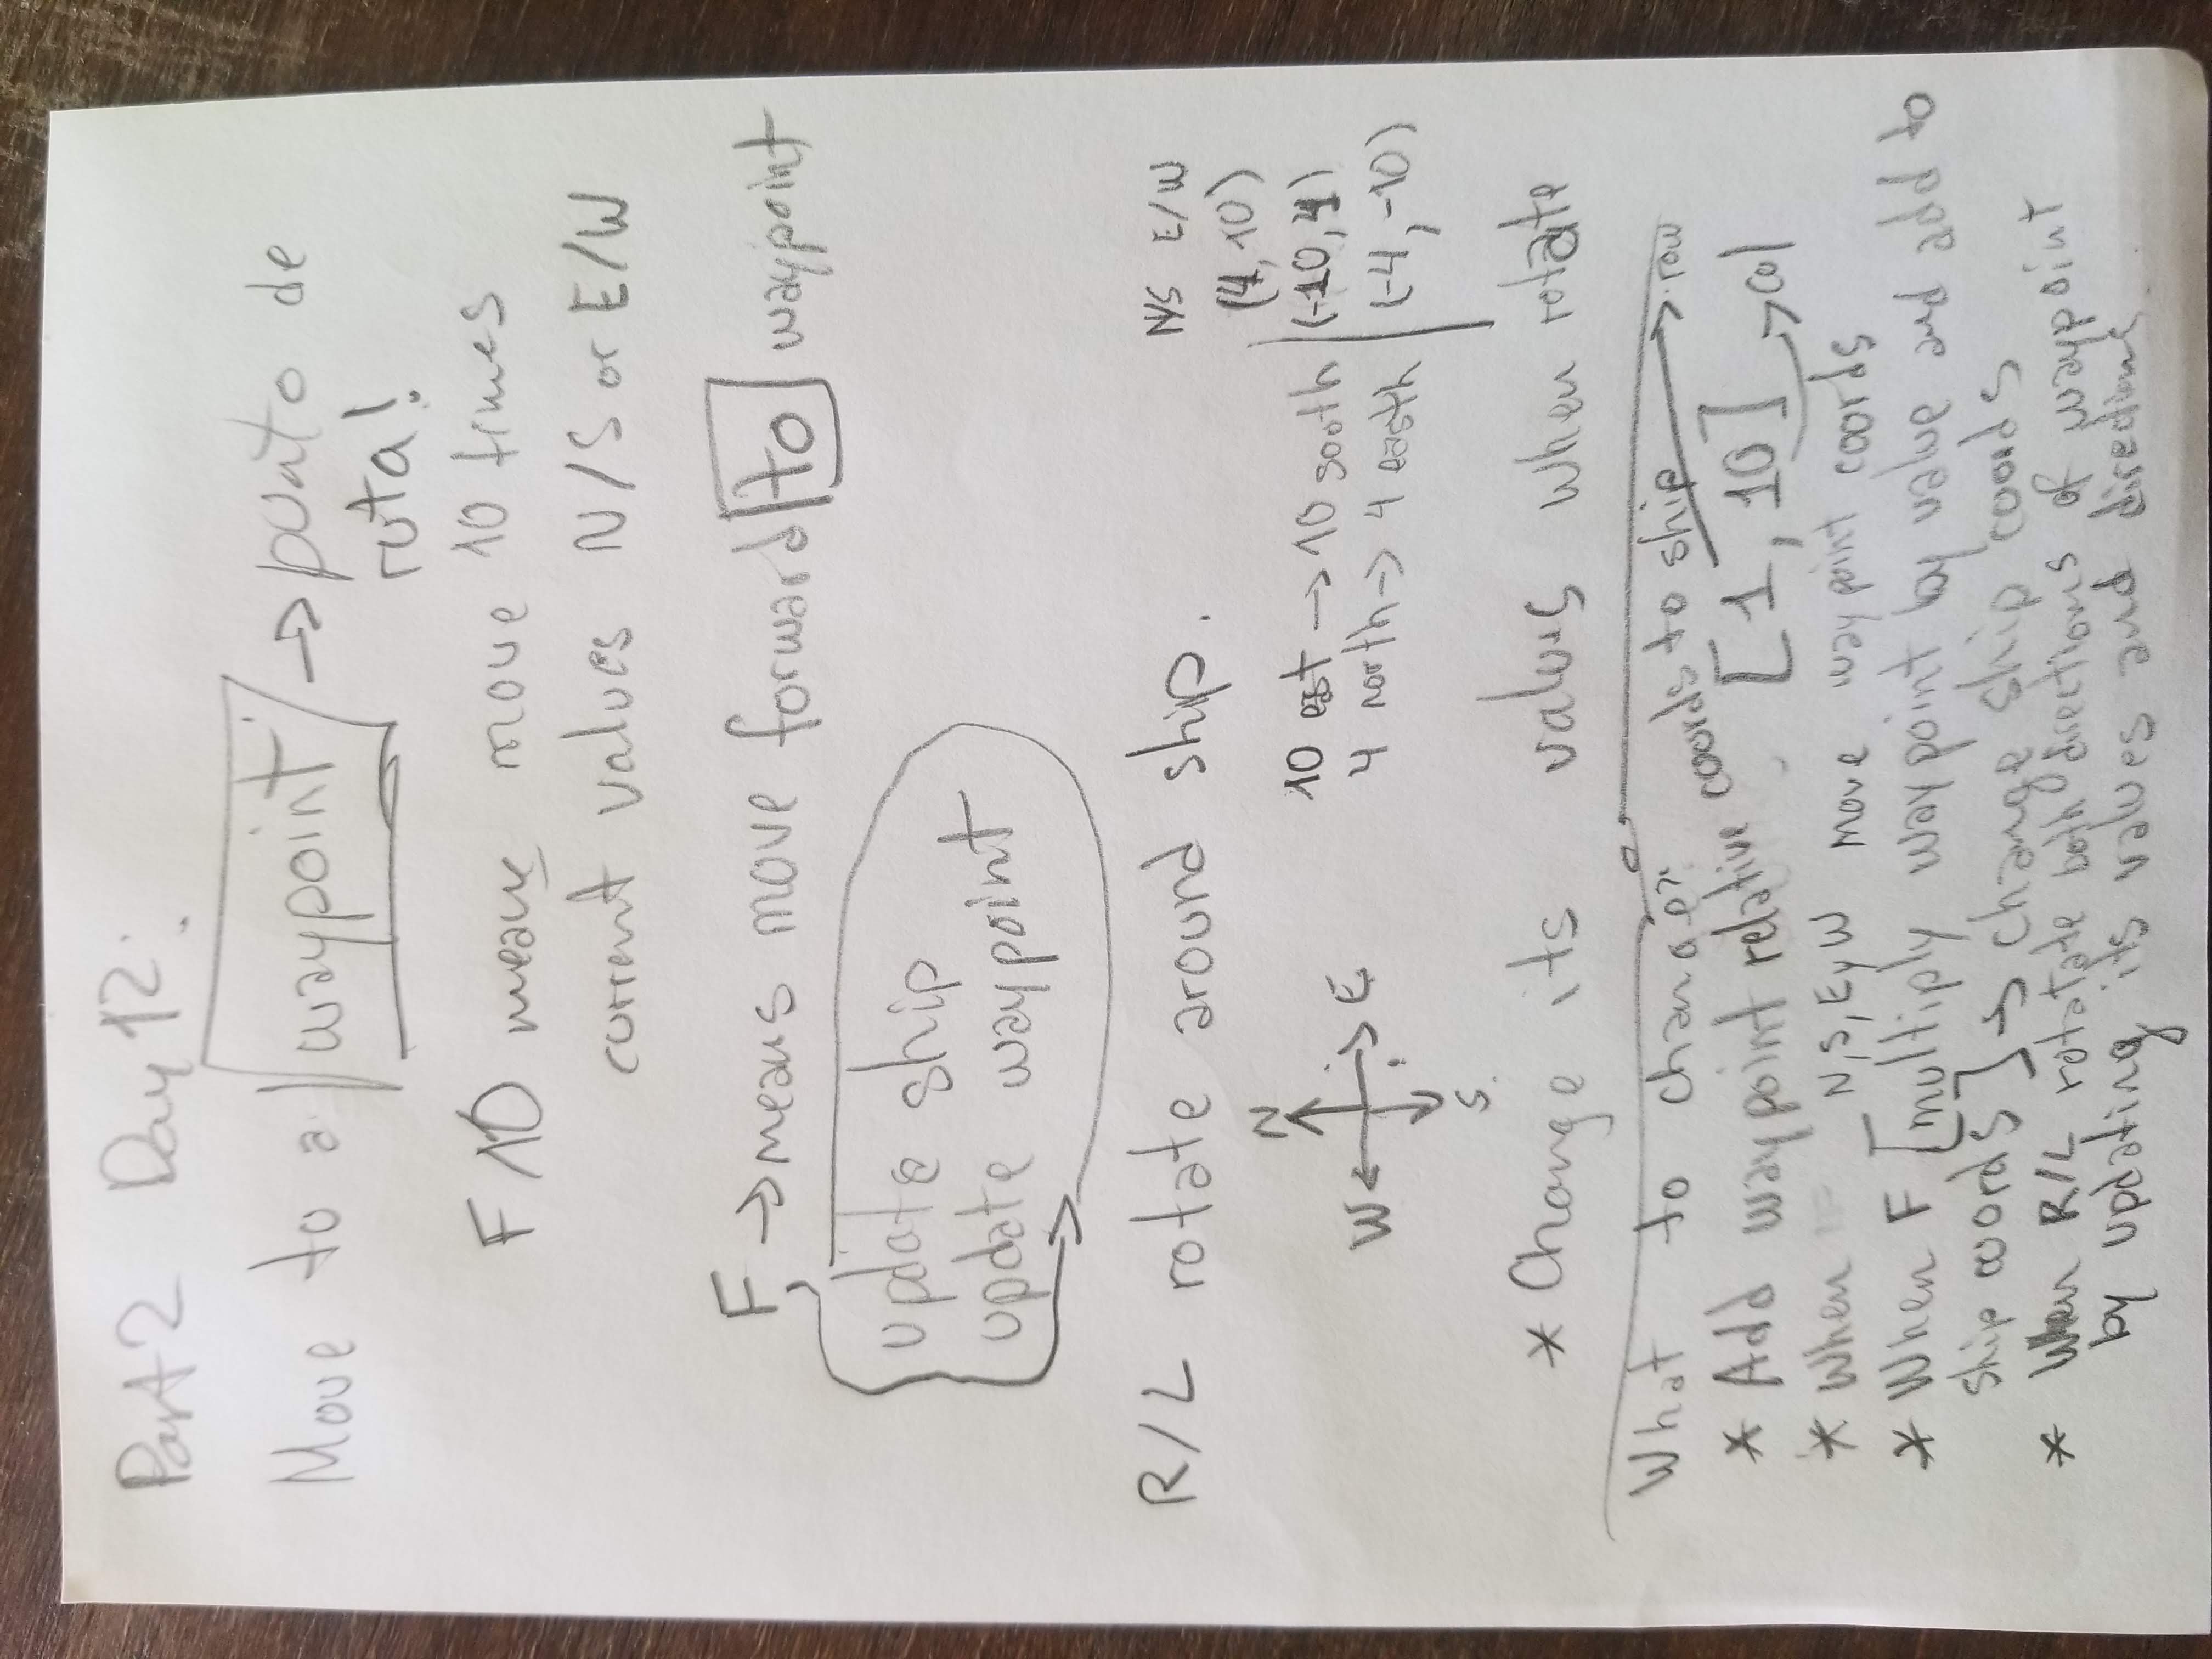 Part 2 Day 12:
Move to a waypoint → punto de
ruta!
F 10 means move 10 times
current values N/S or E/W
F → means move forward to waypoint
update ship
update waypoint
R/L rotate around ship.
N/S E/W
(4, 10)
N
10 est → 10 sooth (-10, 4)
W E
4 north → 4 easth (-4, -10)
S
* Change its values when rotate
What to change?:
* Add waypoint relative coords to ship → row
[1, 10] → col
* When N, S, E y W move waypoint coords
* When F [multiply waypoint by value and add to
ship coords] → change ship coords
* When R/L rotatate both directions of waypoint
by updating its values and directions..